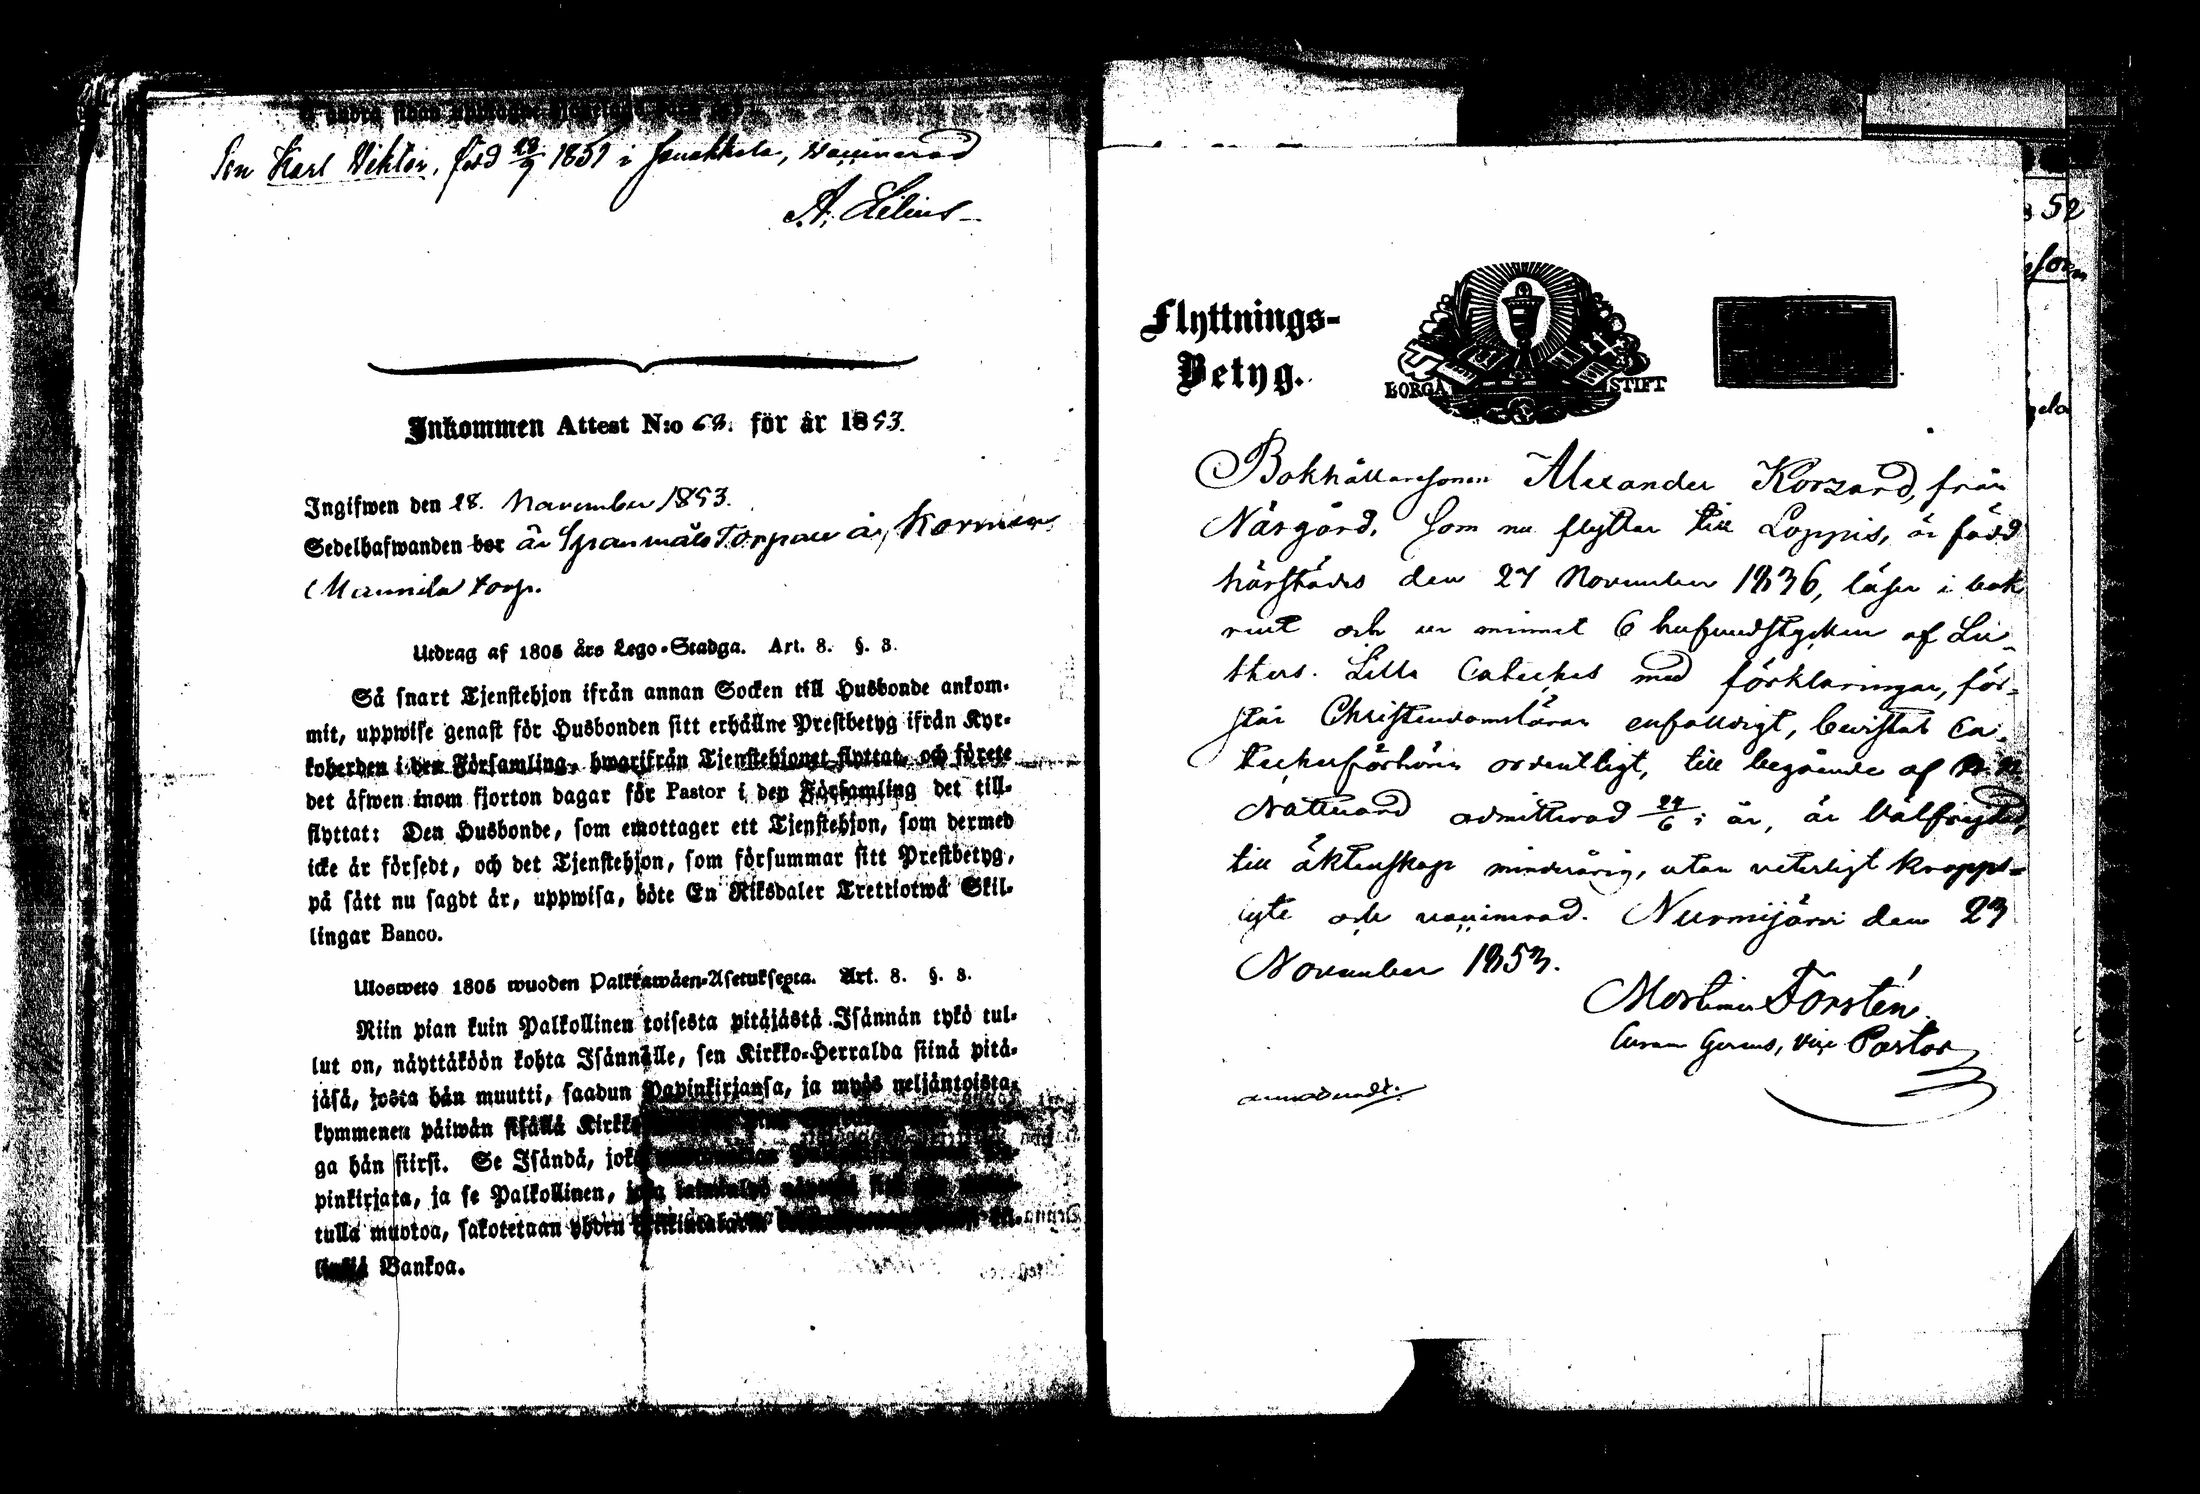 Son Karl Viktor, född 19/9 1851 i Janakkala, vaccinerad
A. Lilius
Inkommen Attest N:o 62. för år 1853.
Ingifwen den 28. November 1853.
Sedelhafwanden bor är Torpare å, Kormu
Maunila torp.
Utdrag af 1805 års Lego-Stadga. Art. 8. §. 3.
Så snart Tjenstehjon ifrån annan Socken till Husbonde ankom-
mit, uppwise genast för Husbonden sitt erhållne Prestbetyg ifrån Kyr-
koherden i den Församling, hwarifrån Tjenstehjonet flyttat, och förete
det äfwen inom fjorton dagar för Pastor i den Församling det till-
flyttat: Den Husbonde, som emottager ett Tjenstehjon, som dermed
icke är försedt, och det Tjenstehjon, som försummar sitt Prestbetyg,
på sätt nu sagdt är, uppwisa, böte En Riksdaler Trettiotwå Skil-
lingar Banco.
Uloswето 1805 wuoden Palkkawäen-Asetuksesta. Art. 8. §. 3.
Niin pian kuin Palkollinen toisesta pitäjästä Isännän tykö tul-
lut on, näyttäköön kohta Isännälle, sen Kirkko-Herralda siinä pitä-
jäsä, josta hän muutti, saadun Papinkirjansa, ja myös neljäntoista-
kymmenen päiwän sisällä
ga hän siirsi. Se Isändä, joka
pinkirjata, ja se Palkollinen,
tulla muotoa, sakotetaan yhden
Bankoa.
52
Flyttnings-
Betyg.
BORGÅ STIFT
Bokhållaresonen Alexander Korzard, från
Närgård, som nu flyttar till Loppis, är född
härstädes den 27 November 1836, läser i bok
rent och ur minnet 6 hufvudstycken af Lu-
thers Lilla Cateches med förklaringar, för-
står Christendomsläran enfalldigt, bevistat Ca-
techesförhören ordentligt, till begående af
Nattvard admitterad 24/6 i år, är välfrejdad,
till äktenskap minderårig, utan veterligt kropps-
lyte och vaccinerad. Nurmijärvi den 23
November 1853.
Mortimer Forstén.
Curam Gerens, Vice Pastor